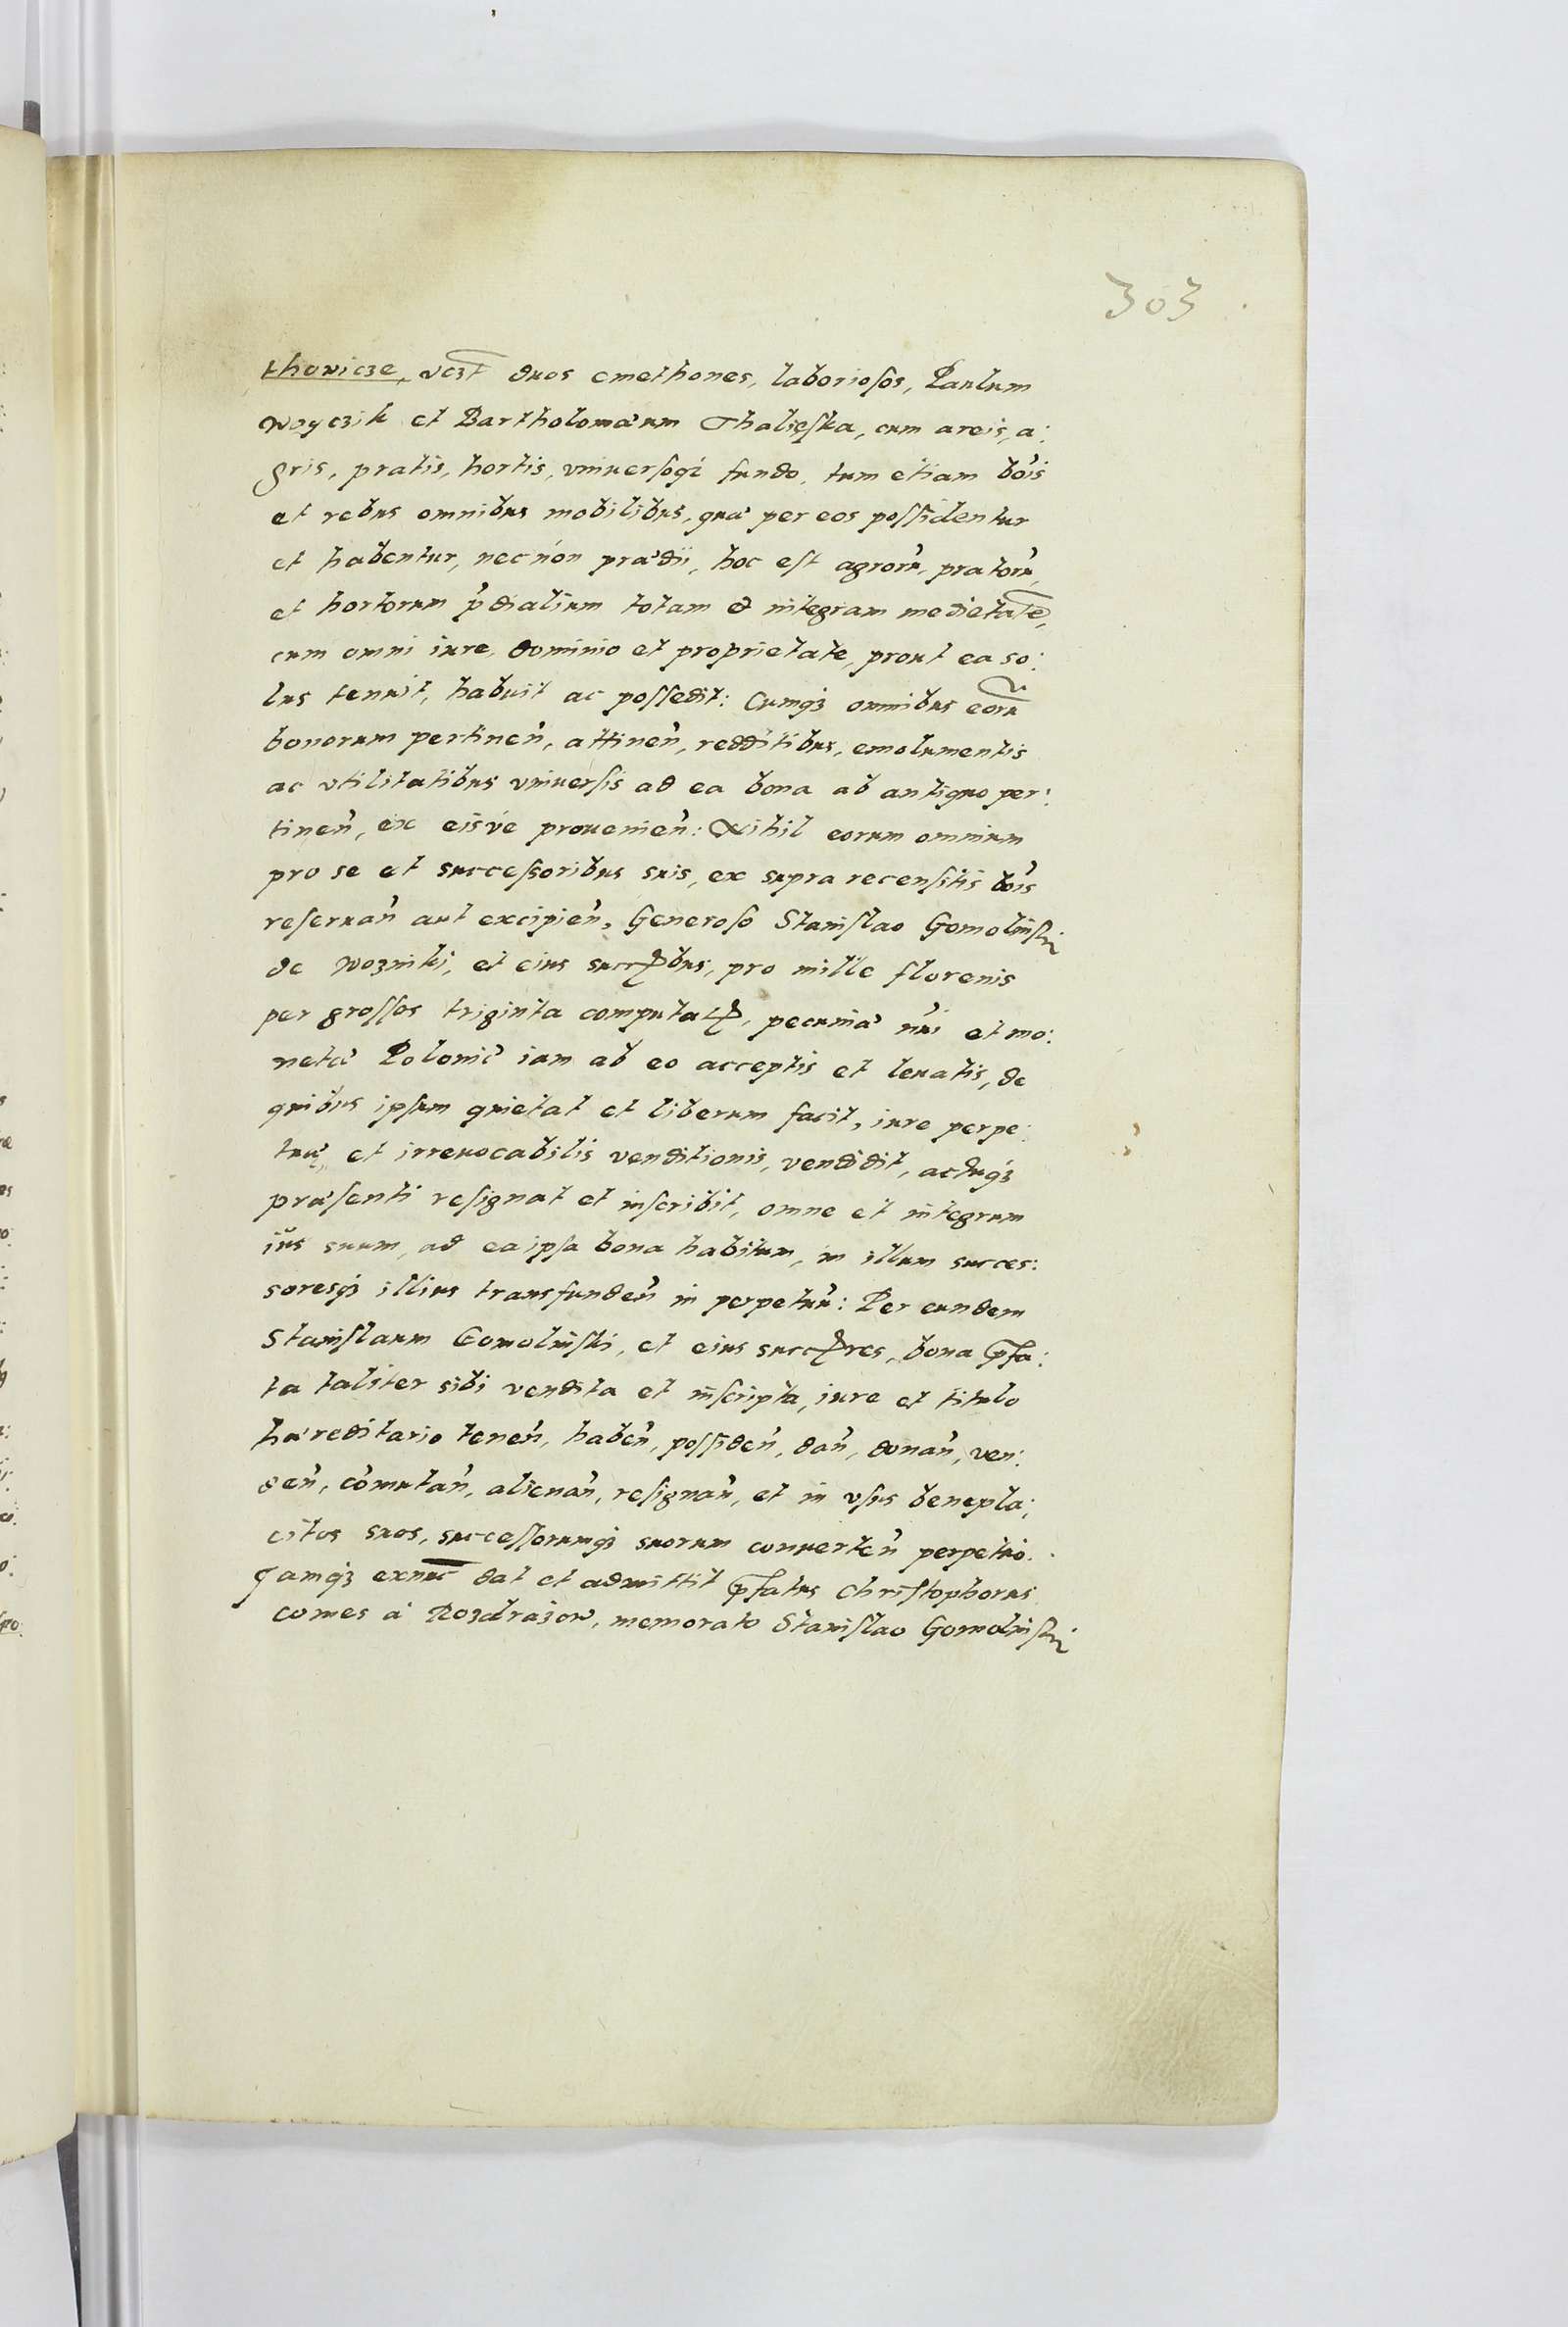 303
thovicze, vczt duos cmethones, laboriosos, Paulum
Woyczik et Bartholomæum Thalieska, cum areis, a:
gris, pratis, hortis, vniuersoq́; fundo, tum etiam bo'is
et rebus omnibus mobilibus, quæ per eos possidentur
et habentur, necnón prædii, hoc est agrorũ, pratorũ,
et hortorum p̃dialium totam & integram medietatẽ,
cum omni iure, dominio et proprietate, prout ea so:
lus tenuit, habuit ac possedit: Cumq́; omnibus eorũ
bonorum pertineñ, attineñ, redditibus, emolumentis
ac vtilitatibus vniuersis ad ea bona ab antiquo per:
tineñ, ex eisvé prouenieñ: Nihil eorum omnium
pro se et successoribus suis, ex supra recensitis bo'is
reseruañ aut excipieñ, Generoso Stanislao Gomolinski
de Wozniki, et eius succ̃bus, pro mille florenis
per grossos triginta computatꝭ, pecuniæ nři et mo:
netæ Poloniæ iam ab eo acceptis et leuatis, de
quibus ipsum quietat et liberum facit, iure perpe:
tuæ, et irreuocabilis venditionis, vendidit, actuq́;
præsenti resignat et inscribit, omne et integrum
ius suum, ad ea ipsa bona habitum, in illum succes:
soresq́; illius transfundeñ in perpetuũ: Per eundem
Stanislaum Gomolinski, et eius succ̃res, bona p̃fa:
ta taliter sibi vendita et inscripta, iure et titulo
hæreditario teneñ, habeñ, possideñ, dañ, donañ, ven:
deñ, cõmutañ, alienañ, resignañ, et in vsus benepla:
citos suos, successorumq́; suorum conuerteñ perpetuo.
Jamq́; exnũc dat et admittit p̃fatus Christophorus
comes à Rozdrażow, memorato Stanislao Gomolinski